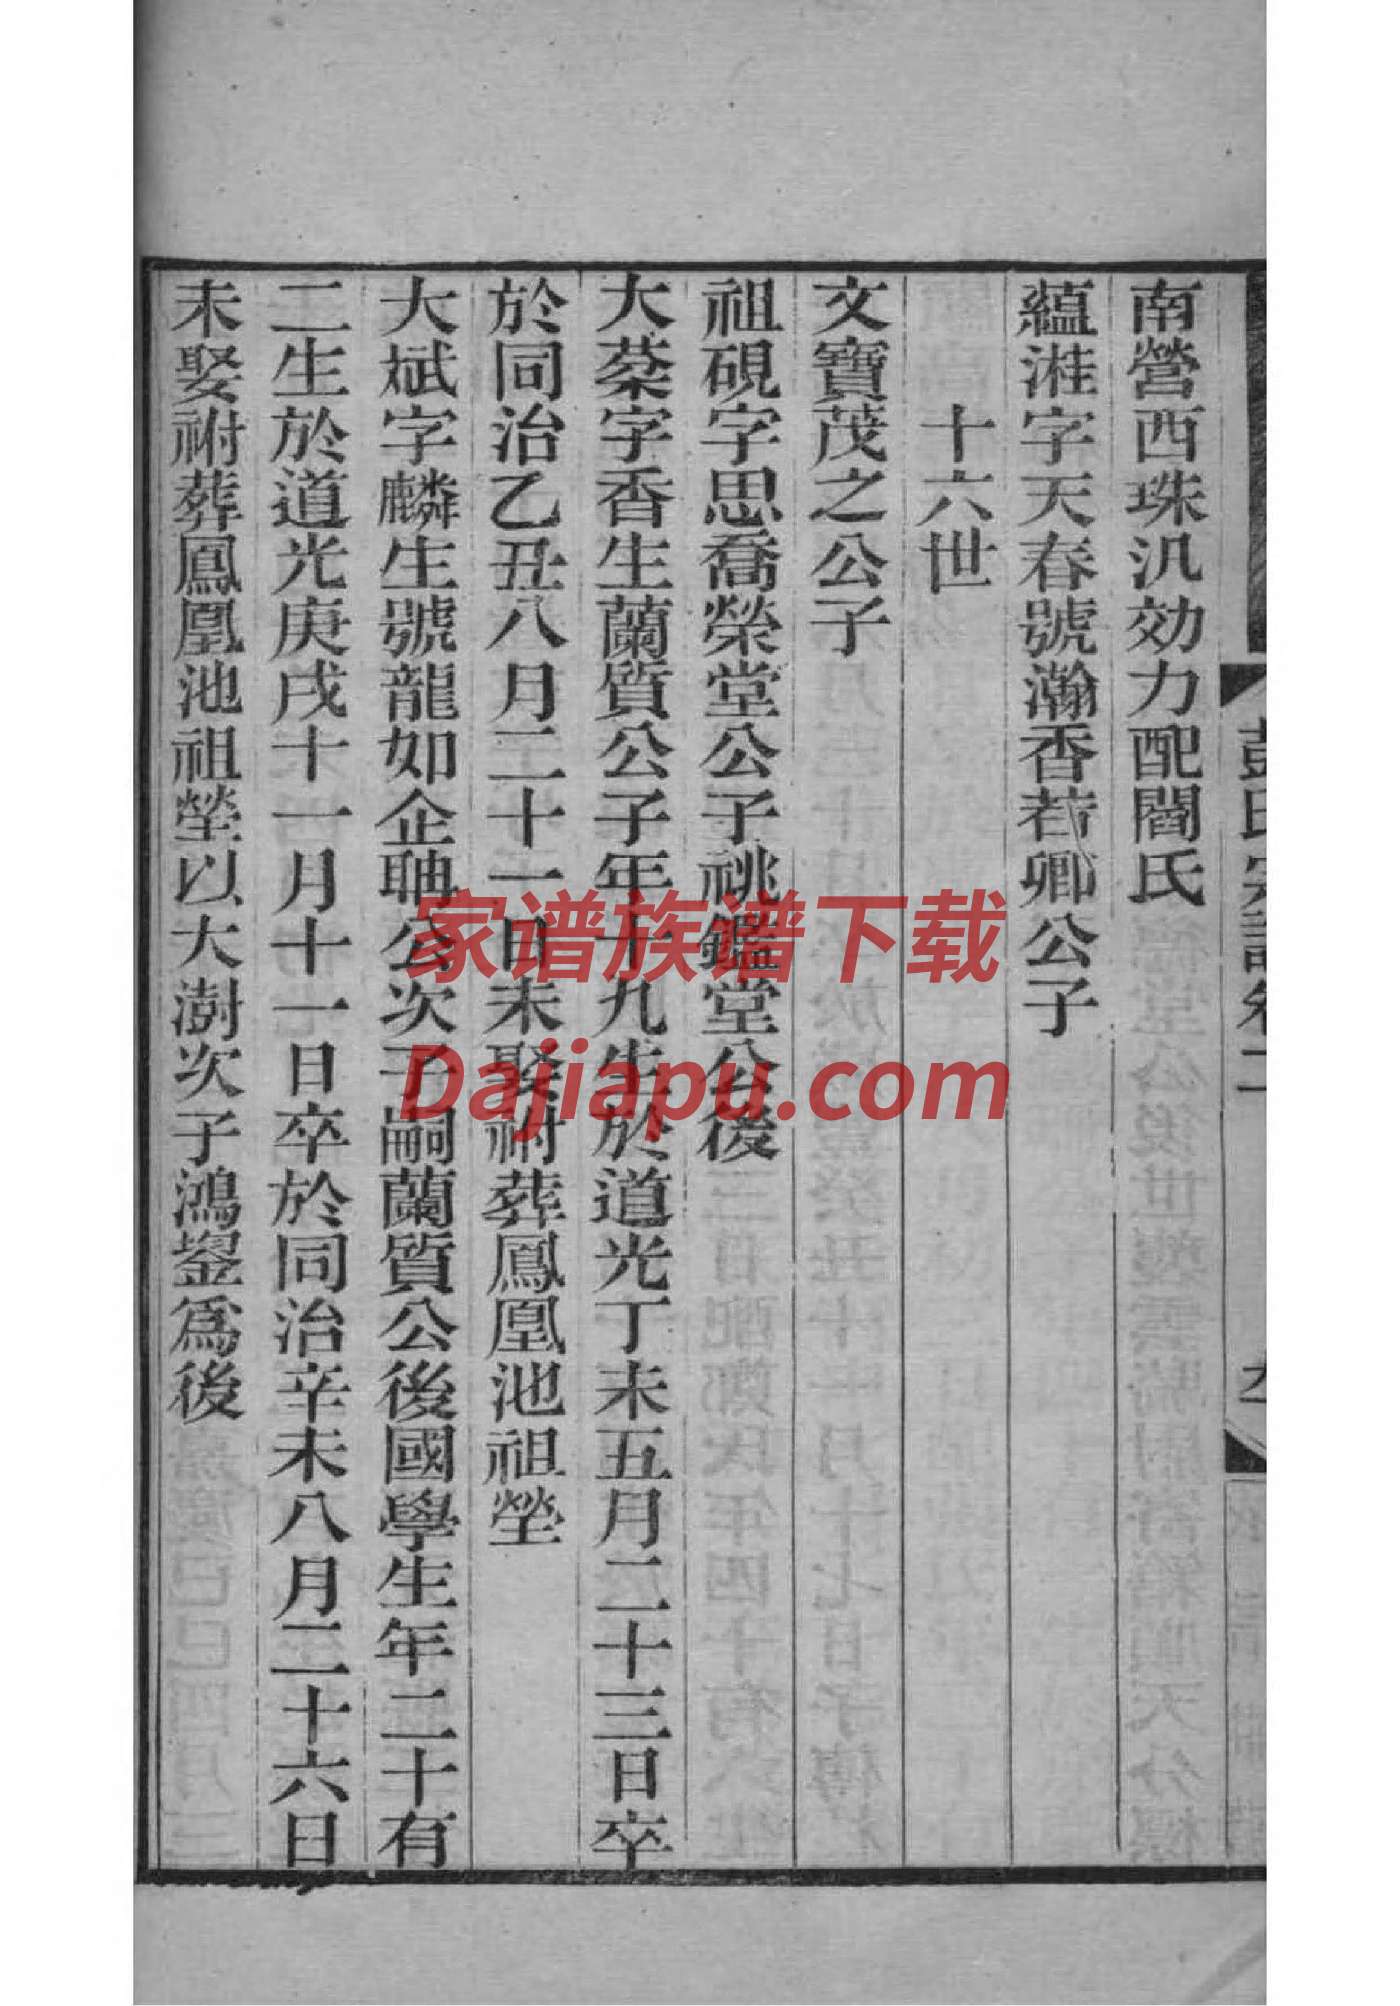 彭氏宗譜卷二
九
南營西珠汛効力配閻氏
蘊溎字天春號瀚香若卿公子
十六世
文寶茂之公子
祖硯字思喬榮堂公子祧鑑堂公後
大棻字香生蘭質公子年十九生於道光丁未五月二十三日卒
於同治乙丑八月二十一日未娶祔葬鳳凰池祖塋
大斌字麟生號龍如企聃公次子嗣蘭質公後國學生年二十有
二生於道光庚戌十一月十一日卒於同治辛未八月二十六日
未娶祔葬鳳凰池祖塋以大澍次子鴻鋆爲後
家谱族谱下载
Dajiapu.com